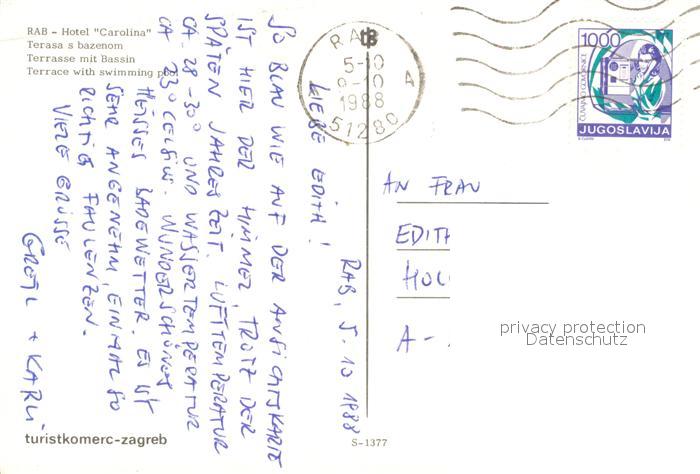 RAB - Hotel "Carolina"
Terasa s bazenom
Terrasse mit Bassin
Terrace with swimming pool
RAB, 5.10 1988
LIEBE EDITH!
SO BLAU WIE AUF DER ANSICHTSKARTE
IST HIER DER HIMMEL, TROTZ DER
SPÄTEN JAHRESZEIT. LUFTTEMPERATUR
CA. 28-30° UND WASSERTEMPERATUR
CA 23° CELSIUS. WUNDERSCHÖNES
HEISSES BADEWETTER. ES IST
SEHR ANGENEHM, EINMAL SO
RICHTIG FAULENZEN.
VIELE GRÜSSE
GRETL + KARLI
turistkomerc-zagreb
S-1377
RAB
5-10
1988
51280
A
1000
JUGOSLAVIJA
AN FRAU
EDITH
A-.
privacy protection
Datenschutz